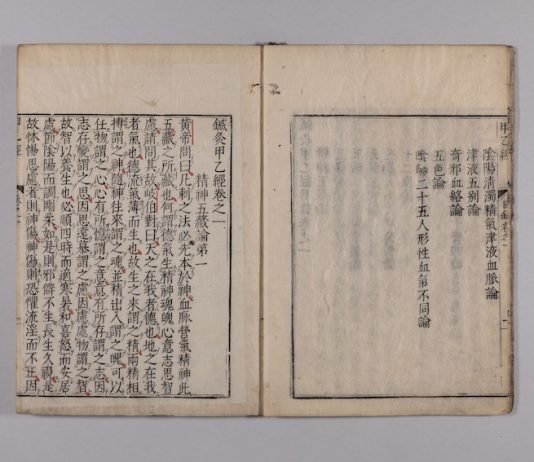 甲乙經
陰陽清濁精氣津液血脈論
津液五別論
奇邪血絡論
五色論
陰陽二十五人形性血氣不同論
鍼灸甲乙經卷之一
精神五藏論第一
黃帝問曰凡刺之法必先本於神血脈營氣精神此
五藏之所藏也何謂德氣生精神魂魄心意志思智
慮請問其故岐伯對曰天之在我者德也地之在我
者氣也德流氣薄而生也故生之來謂之精兩精相
搏謂之神隨神往來謂之魂並精出入謂之魄可以
任物謂之心心有所憶謂之意意有所存謂之志因
志存變謂之思因思遠慕謂之慮因慮處物謂之智
故智以養生也必順四時而適寒暑和喜怒而安居
處節陰陽而調剛柔如是則邪僻不生長生久視是
故怵惕思慮者則神傷神傷則恐懼流淫而不正因